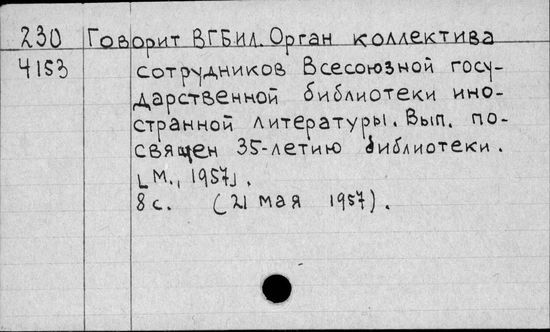 230 Говорит ВГБИЛ. Орган коллектива
4153 сотрудников Всесоюзной госу-
дарственной библиотеки ино-
странной литературы. Вып. по-
священ 35-летию библиотеки.
[М., 1957].
8 с. (21 мая 1957).